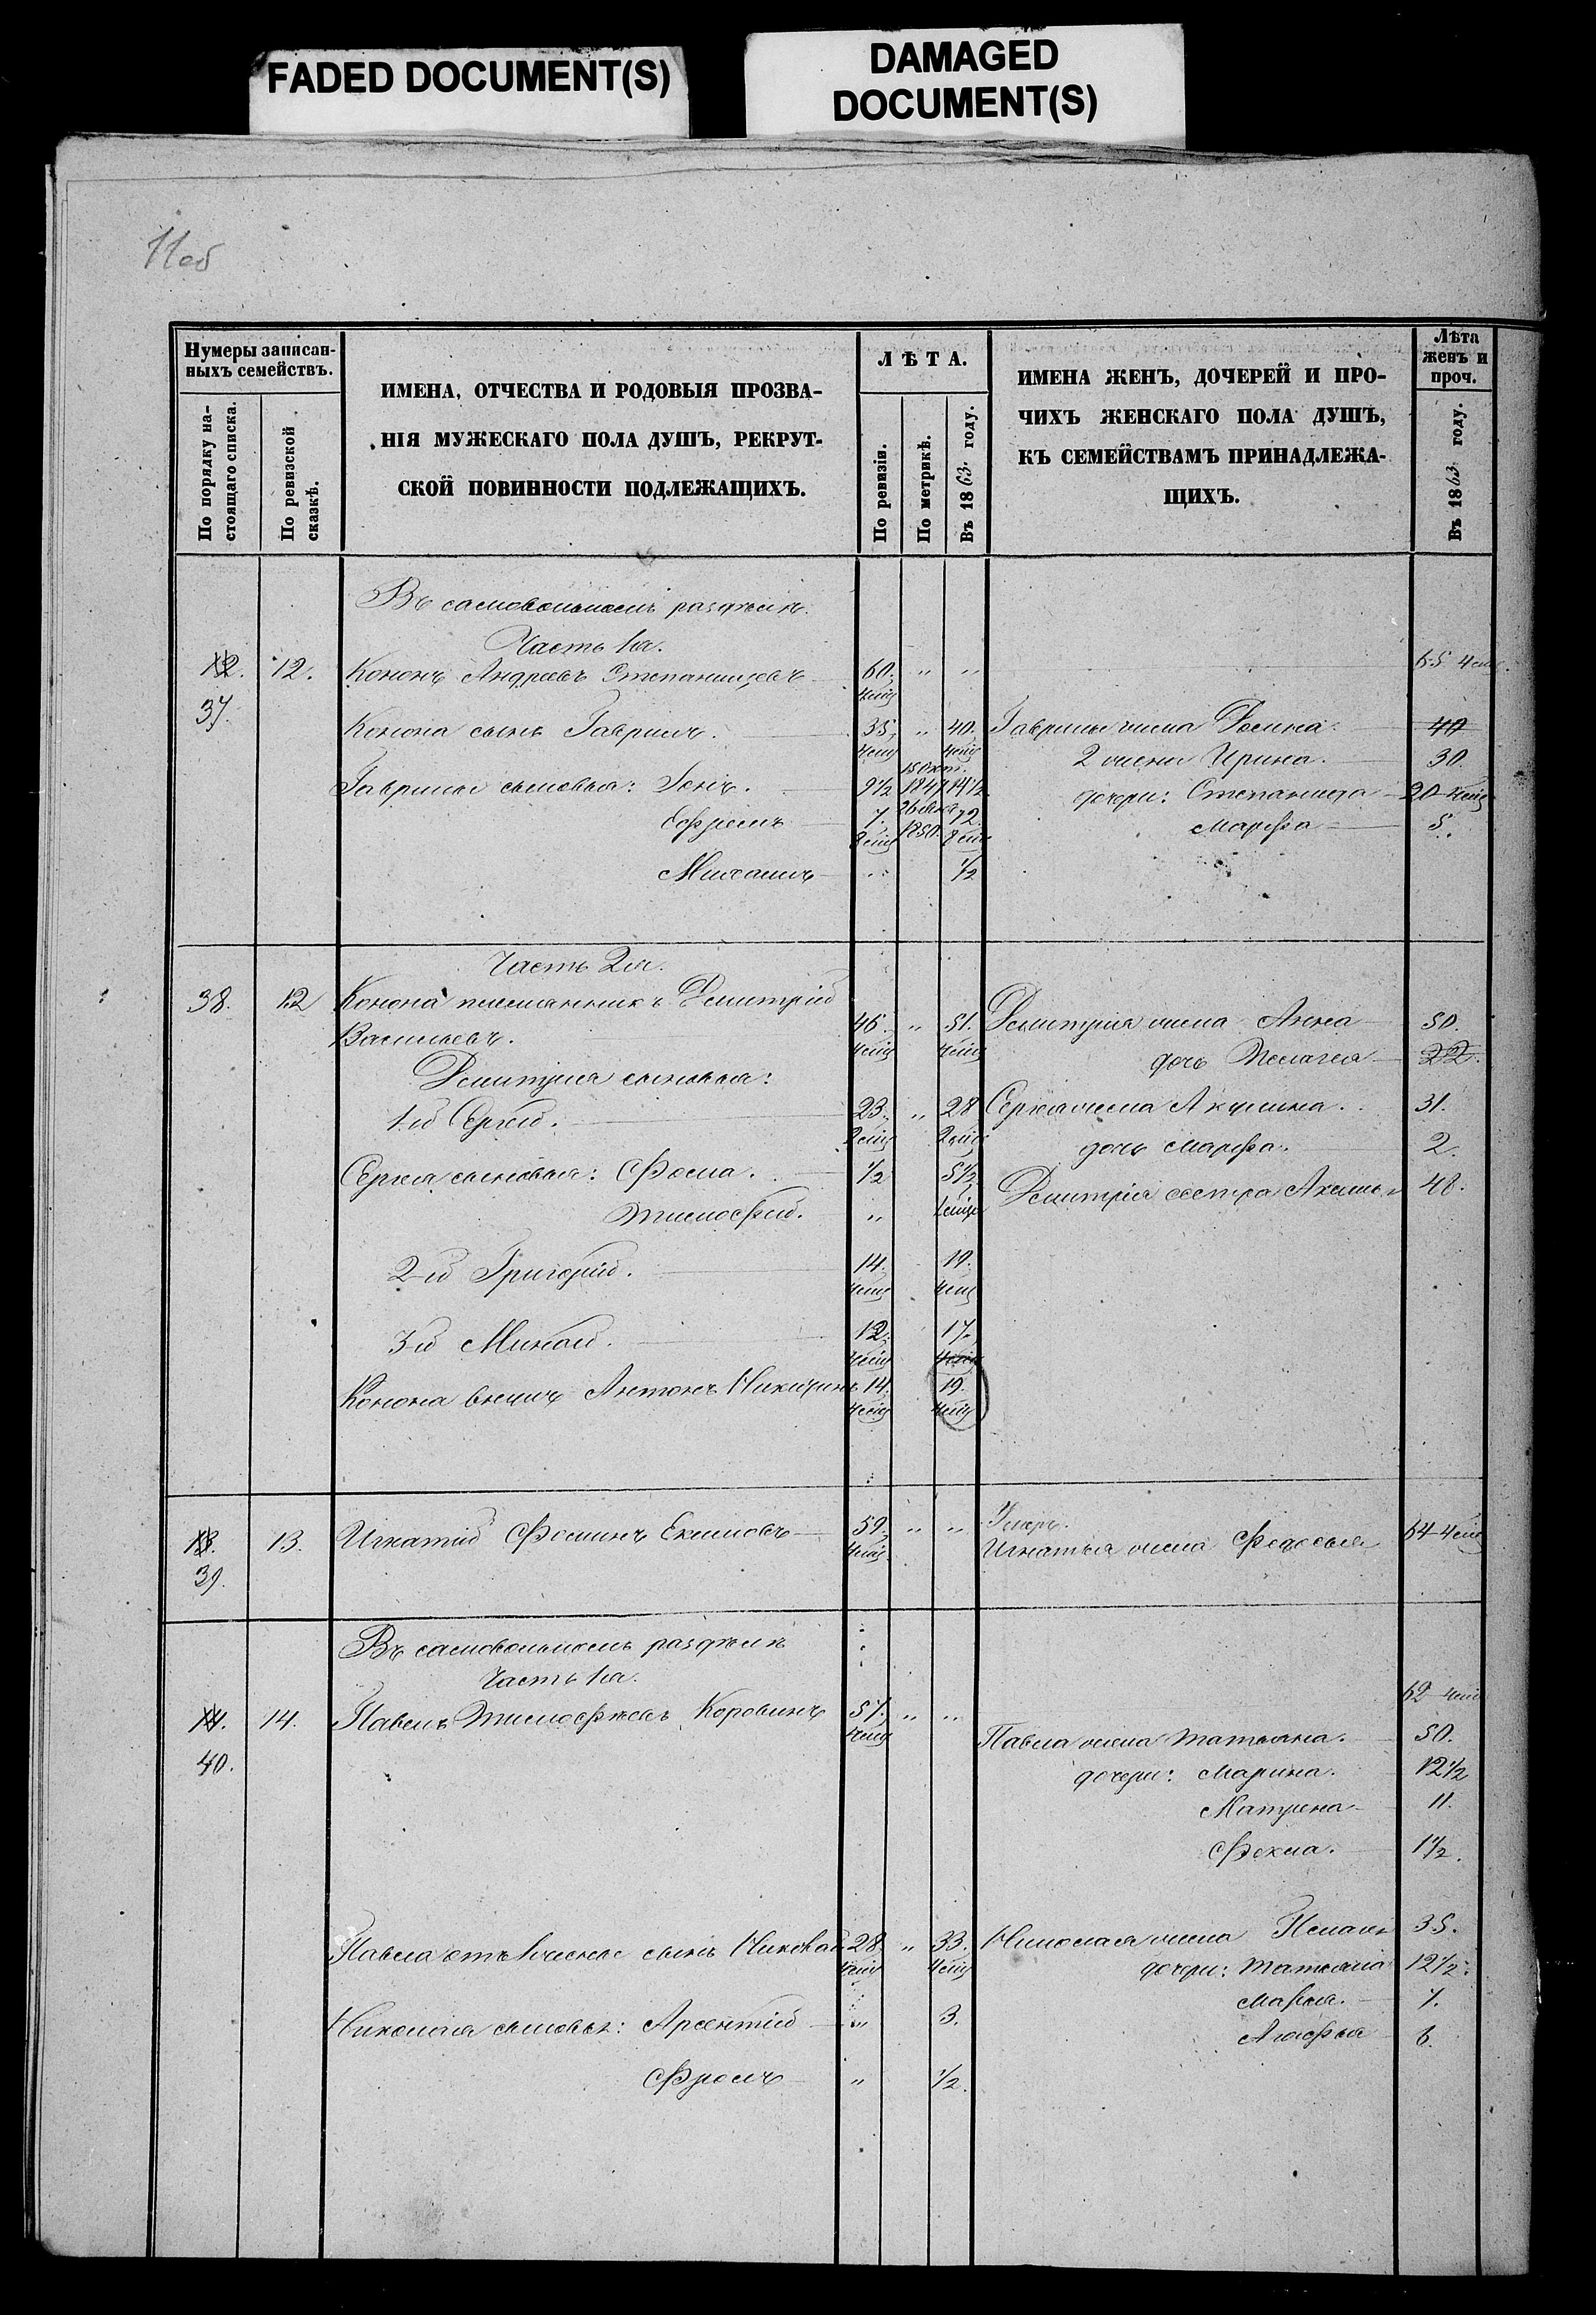 FADED DOCUMENT(S)
DAMAGED
DOCUMENT(S)
11об
Нумеры записан-
ныхъ семействъ.
По порядку на-
стоящаго списка.
По ревизской
сказкѣ.
ИМЕНА, ОТЧЕСТВА И РОДОВЫЯ ПРОЗВА-
НІЯ МУЖЕСКАГО ПОЛА ДУШЪ, РЕКРУТ-
СКОЙ ПОВИННОСТИ ПОДЛЕЖАЩИХЪ.
ЛѢТА.
По ревизіи.
По метрикѣ.
Въ 1863 году.
ИМЕНА ЖЕНЪ, ДОЧЕРЕЙ И ПРО-
ЧИХЪ ЖЕНСКАГО ПОЛА ДУШЪ,
КЪ СЕМЕЙСТВАМЪ ПРИНАДЛЕЖА-
ЩИХЪ.
Лѣта
женъ и
проч.
Въ 1863 году.
Въ самовольномъ раздѣлѣ
Часть 1я.
12. 12. Кононъ Андреевъ 60. " " 65
37.
Конона сынъ Гаврилъ. 35. " 40. Гаврилы жена 40
2 жена Ирина. 30.
Гаврилы сыновья: 9½ 1847 14½ дочери: Степанида 20
Ефремъ 7. 1850. 12. Марфа 5.
Михаилъ ½
Часть 2я.
38. 12 Конона племянникъ Дмитрій
Васильевъ. 46. " 51. Дмитрія жена Анна 50.
дочь Пелагея 22.
Дмитрія сыновья:
1й Сергѣй. 23. " 28 Сергѣя жена Акулина. 31.
дочь Марфа. 2.
Сергѣя сыновья: Фома. ½ 5½
Дмитрія сестра 48.
Тимофѣй. "
2й Григорій. 14. 19.
3й Минай. 12. 17.
Конона внукъ Антонъ Никитинъ 14. 19.
13. 13. Игнатій Фоминъ Екимовъ 59. " " Умеръ.
39. Игнатья жена Федосья 64
Въ самовольномъ раздѣлѣ
Часть 1я.
62
14. 14. Павелъ Тимофѣевъ Коровинъ 57. " "
40. Павла жена Татьяна. 50.
дочери: Марина. 12½
Матрена 11.
Фекла. 1½.
Павла сынъ Николай 28 " 33. Николая жена 35.
дочери: Татьяна 12½.
Марья. 7.
Николая сыновья: Арсентій " 3. Агафья 6.
Фролъ " ½.